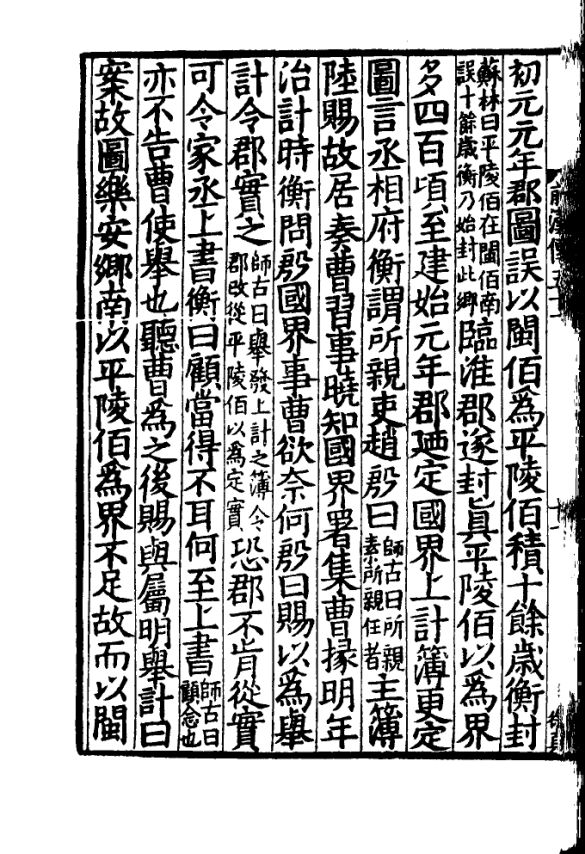 初元元年郡圖誤以閩佰為平陵佰積十餘歲衡封
蘇林曰平陵佰在閩佰南誤十餘歲衡乃始封此鄉臨淮郡遂封真平陵佰以為界
多四百頃至建始元年郡廼定國界上計簿更定
圖言丞相府衡謂所親吏趙殷曰師古曰所親素所親任者主簿
陸賜故居奏曹習事曉知國界署集曹掾明年
治計時衡問殷國界事曹欲奈何殷曰賜以為舉
計令郡實之師古曰舉發上計之簿令郡改從平陵佰以為定實恐郡不肯從實
可令家丞上書衡曰顧當得不耳何至上書師古曰顧念也
亦不告曹使舉也聽曹為之後賜與屬明舉計曰
案故圖樂安鄉南以平陵佰為界不足故而以閩